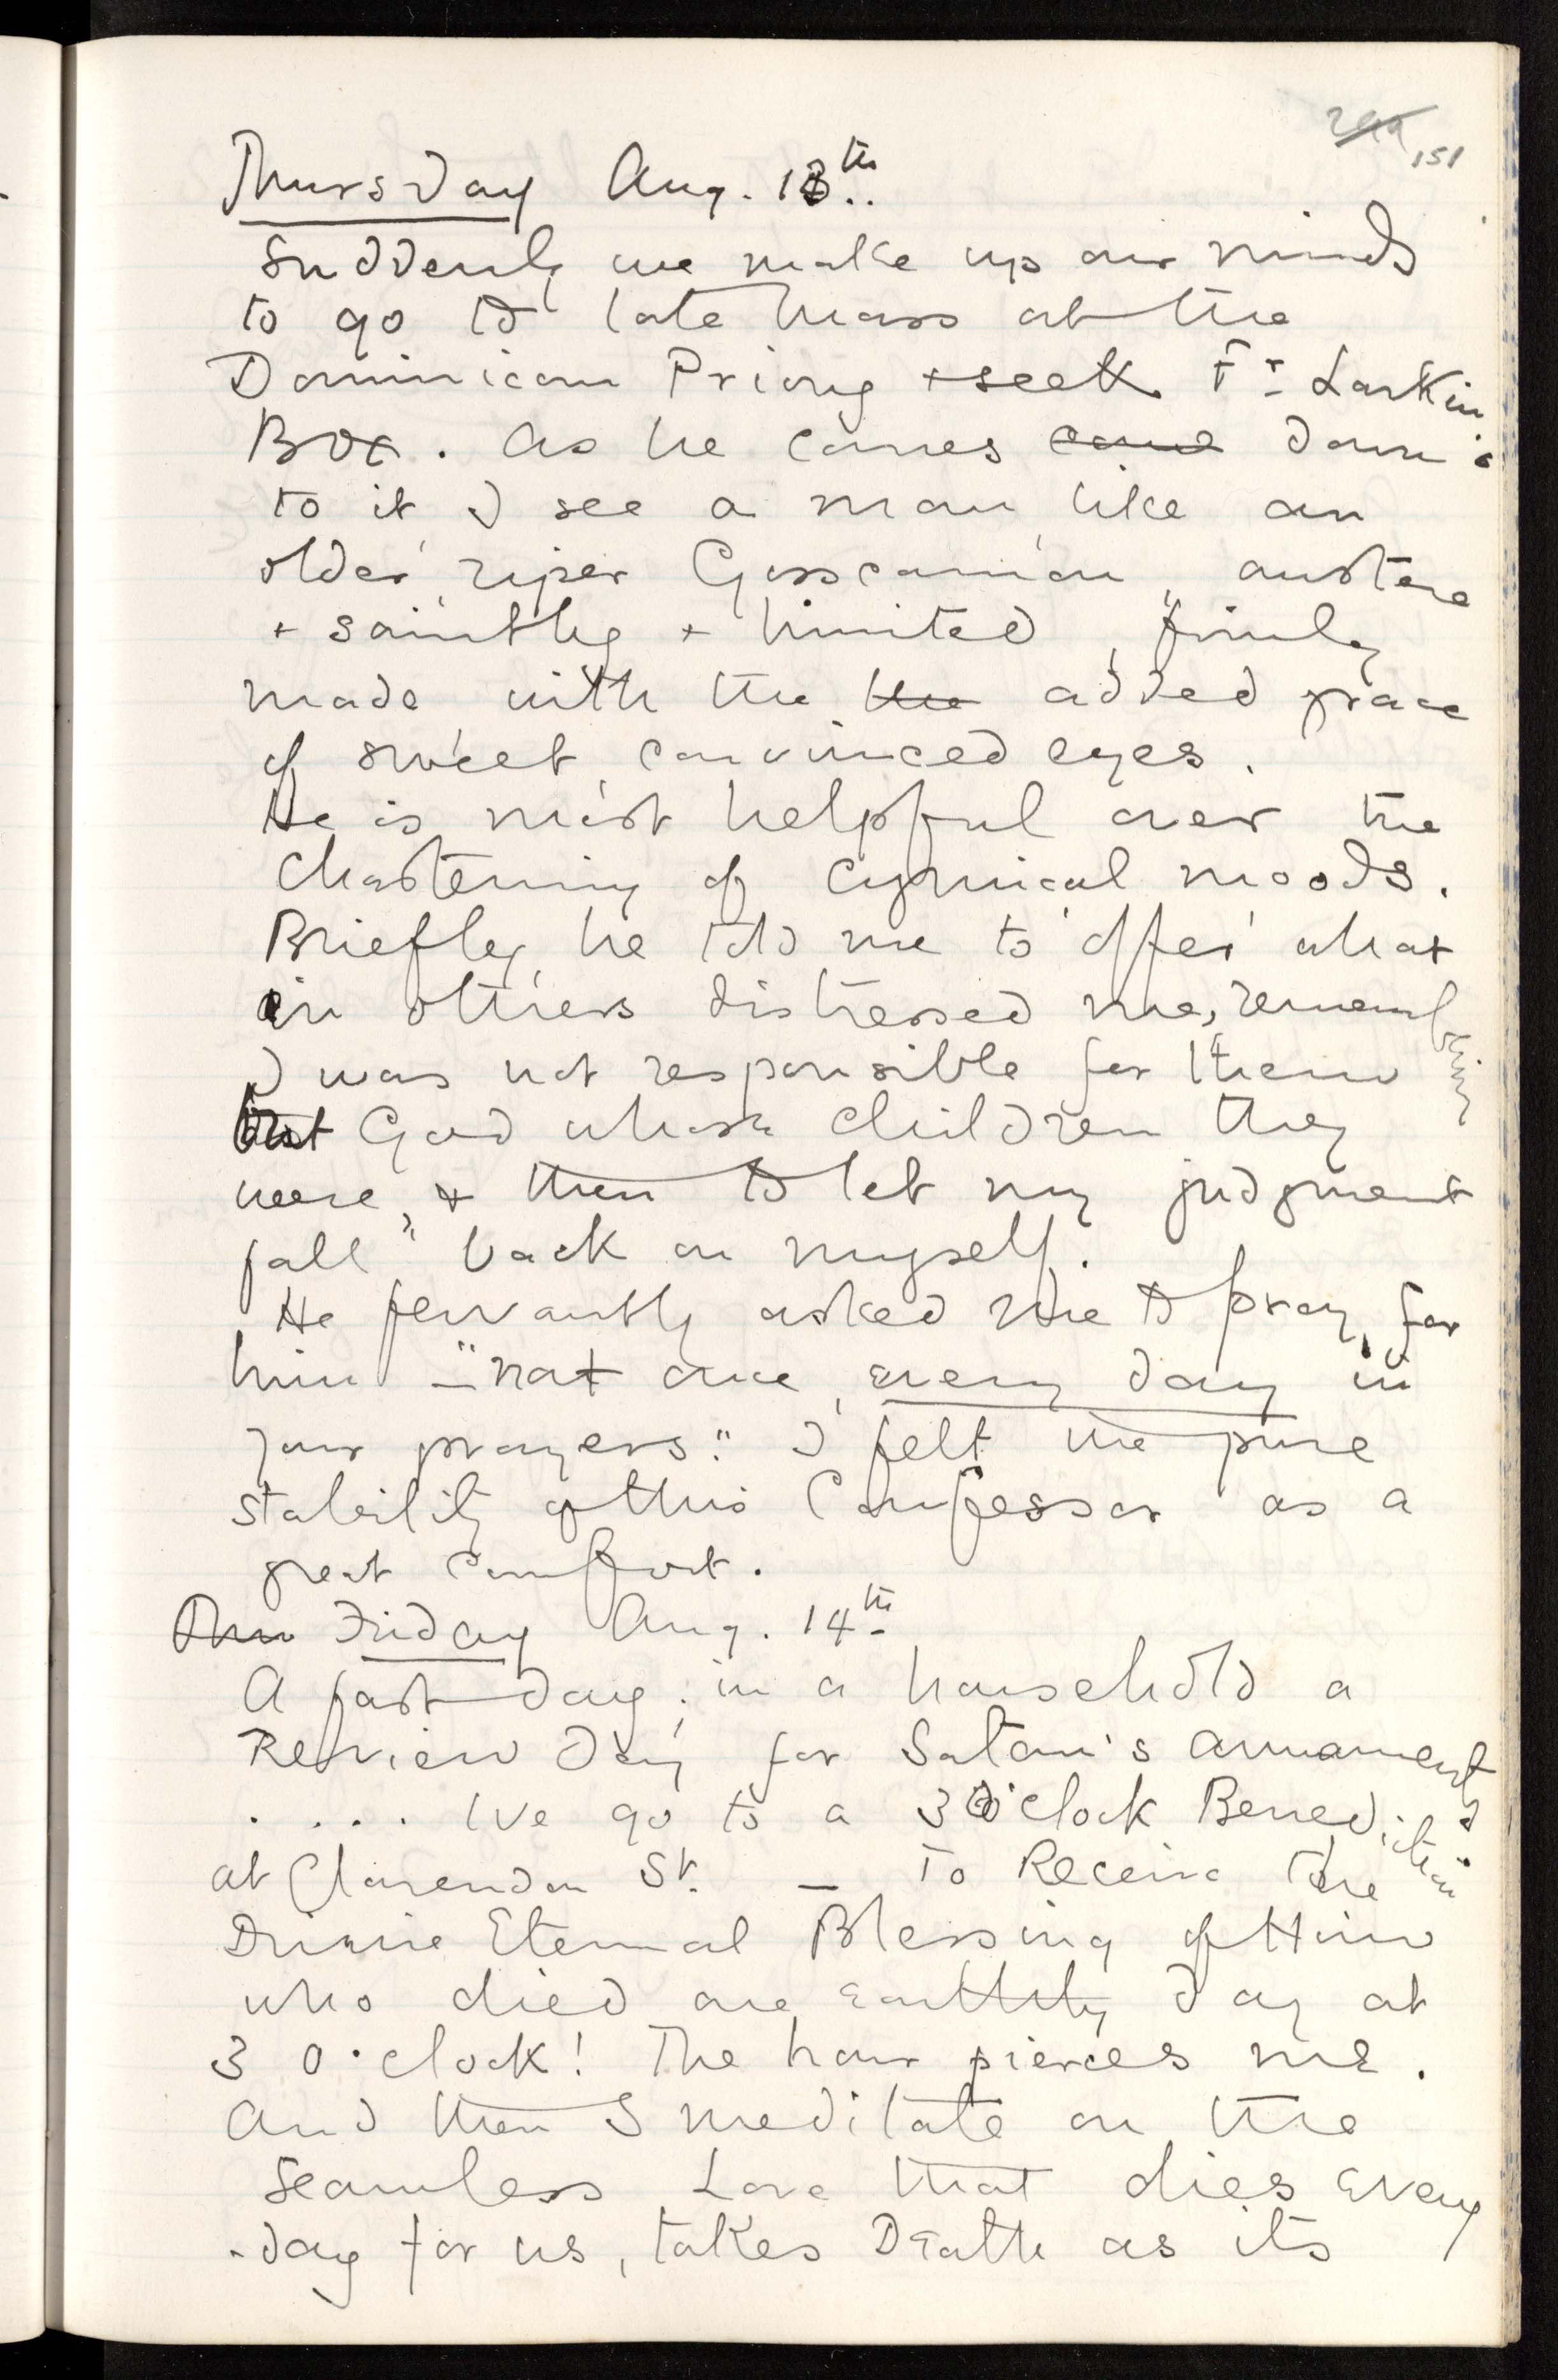 151
Thursday Aug. 13th..
Suddenly we make up our minds
to go to late Mass at the
Dominican Priory + seek Fr Larkin's
Box. As he comes came down
to it I see a man like an
older, riper Gosscannon, austere
+ saintly + limited, finely
made with the the added grace
of sweet, convinced eyes.
He is most helpful over the
Chastening of cynical moods.
Briefly, he told me to offer what
in others distressed me, remembering
I was not responsible for them
but God whose children they
were, & then to let my judgment
"fall" back on myself.
He fervantly asked me to pray for
him – "not once, every day in
your prayers." I felt the pure
stability of this Confessor as a
great comfort.
Thu Friday Aug. 14th
A fast-day; in a household a
Review Day for Satan's armaments
.... We go to a 3 o'clock Benediction
at Clarendon St. – To Receive the
Divine Eternal Blessing of Him
who died one earthly day at
3 o'clock! The hour pierces me.
And then I meditate on the
Seamless Love that dies every
-day for us, takes Death as its